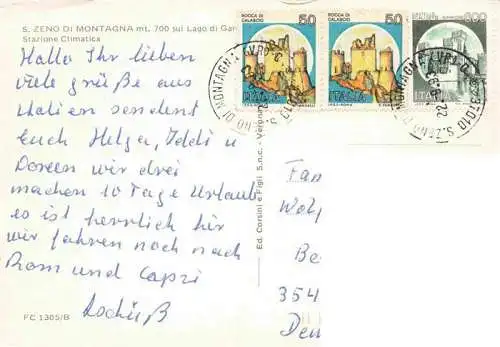 S. ZENO DI MONTAGNA mt. 700 sul Lago di Gar
Stazione Climatica
Hallo Ihr lieben
viele grüße aus
Italien sendent
Euch Helga, Teddi u
Doreen wir drei
machen 10 Tage Urlaub
es ist herrlich hir
wir fahren noch nach
Rom und Capri
Tschüß
FC 1305/B
Ed. Corsini e Figli S.n.c. - Verona
ROCCA DI CALASCIO 50
ITALIA
ROCCA DI CALASCIO 50
ITALIA
600
ITALIA
DI MONTAGNA
37010 S. ZENO
Fam
Wol
Be
354
Den